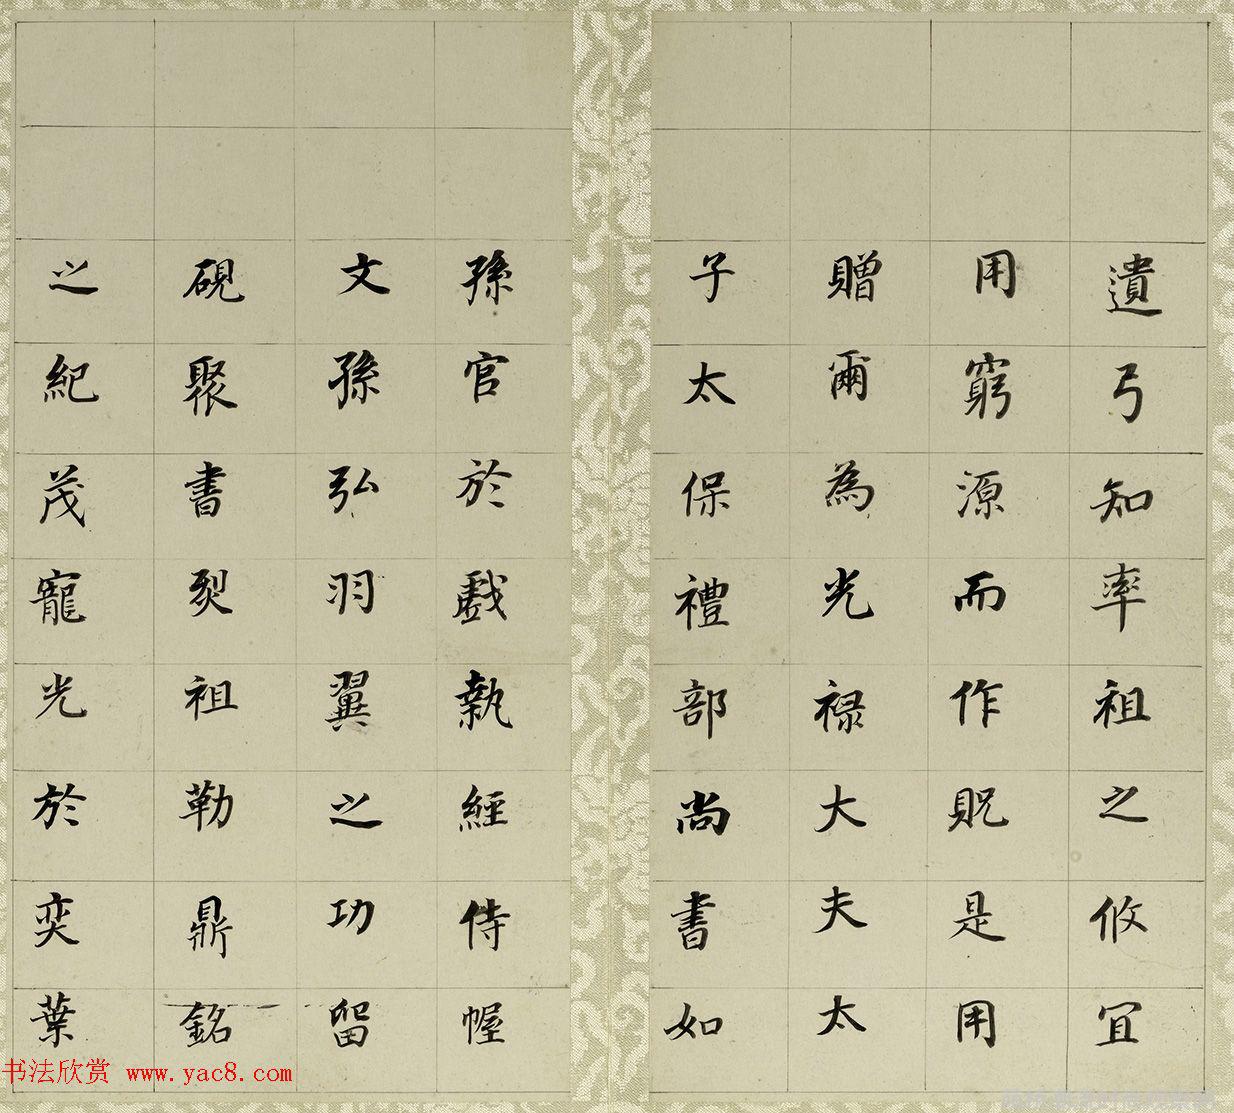 遺弓知率祖之攸宜
用窮源而作貺是用
贈爾為光祿大夫太
子太保禮部尚書如
孫官於戲執經侍幄
文孫弘羽翼之功留
硯聚書烈祖勒鼎銘
之紀茂寵光於奕葉
书法欣赏 www.yac8.com